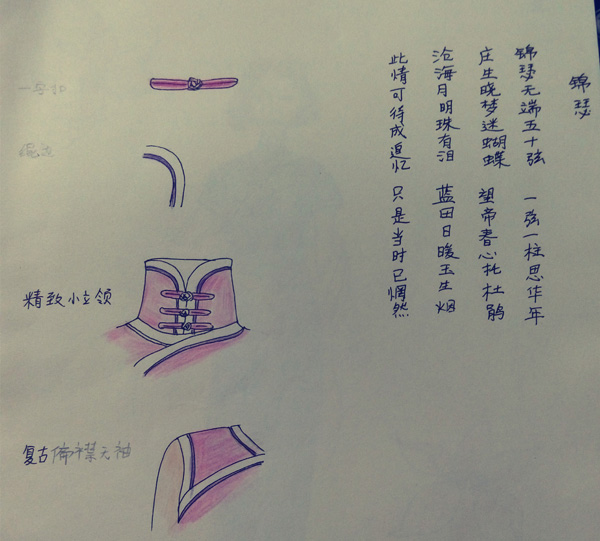 锦瑟
锦瑟无端五十弦 一弦一柱思华年
庄生晓梦迷蝴蝶 望帝春心托杜鹃
沧海月明珠有泪 蓝田日暖玉生烟
此情可待成追忆 只是当时已惘然
一字扣
精致小立领
复古偏襟无袖